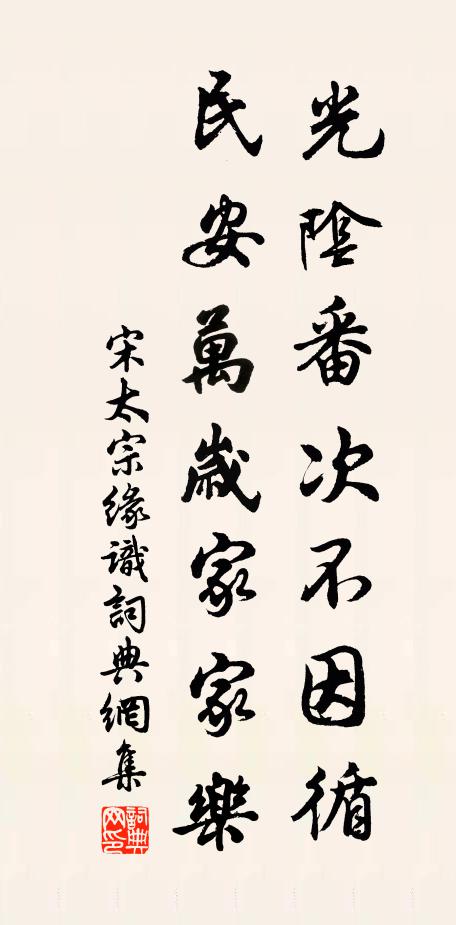 光陰番次不因循
民安萬歲家家樂
宋太宗緣識詞典網集
詞典網印